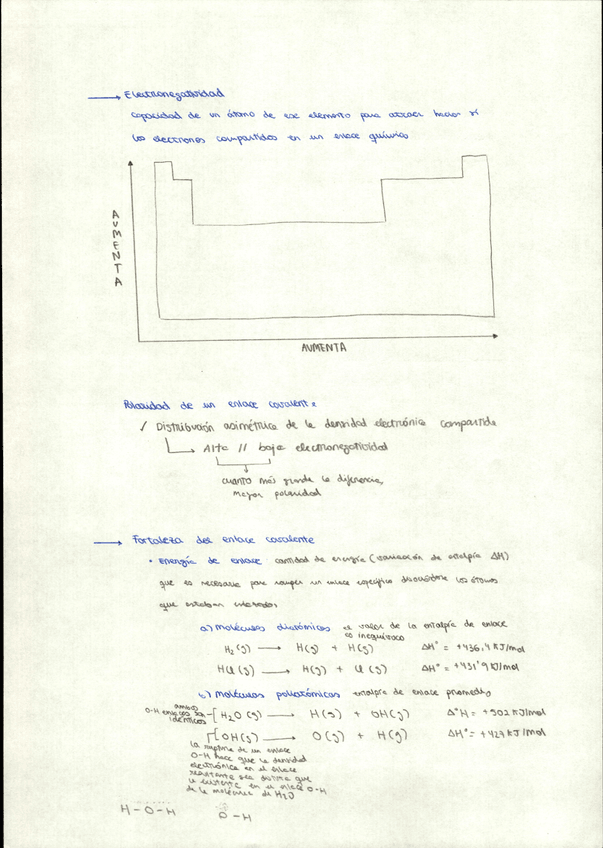 → Electronegatividad
capacidad de un átomo de ese elemento para atraer hacia sí
los electrones compartidos en un enlace químico
AUMENTA
AUMENTA
Polaridad de un enlace covalente
✓ Distribución asimétrica de la densidad electrónica compartida
Alta // baja electronegatividad
cuanto más grande la diferencia,
mayor polaridad
→ Fortaleza del enlace covalente
• Energía de enlace cantidad de energía (variación de entalpía ΔH)
que es necesaria para romper un enlace específico los átomos
que estaban enlazados
a) Moléculas diatómicas el valor de la entalpía de enlace
es inequívoco
H₂(g) → H(g) + H(g) ΔH° = +436,4 KJ/mol
HCl(g) → H(g) + Cl(g) ΔH° = +431'9 KJ/mol
b) Moléculas poliatómicas entalpía de enlace promedio
ambos
O-H enlaces son
idénticos
H₂O(g) → H(g) + OH(g) Δ°H = +502 KJ/mol
OH(g) → O(g) + H(g) ΔH° = +427 KJ/mol
la ruptura de un enlace
O-H hace que la densidad
electrónica en el enlace
resultante sea distinta que
la existente en el enlace O-H
de la molécula de H₂O
H-O-H O-H